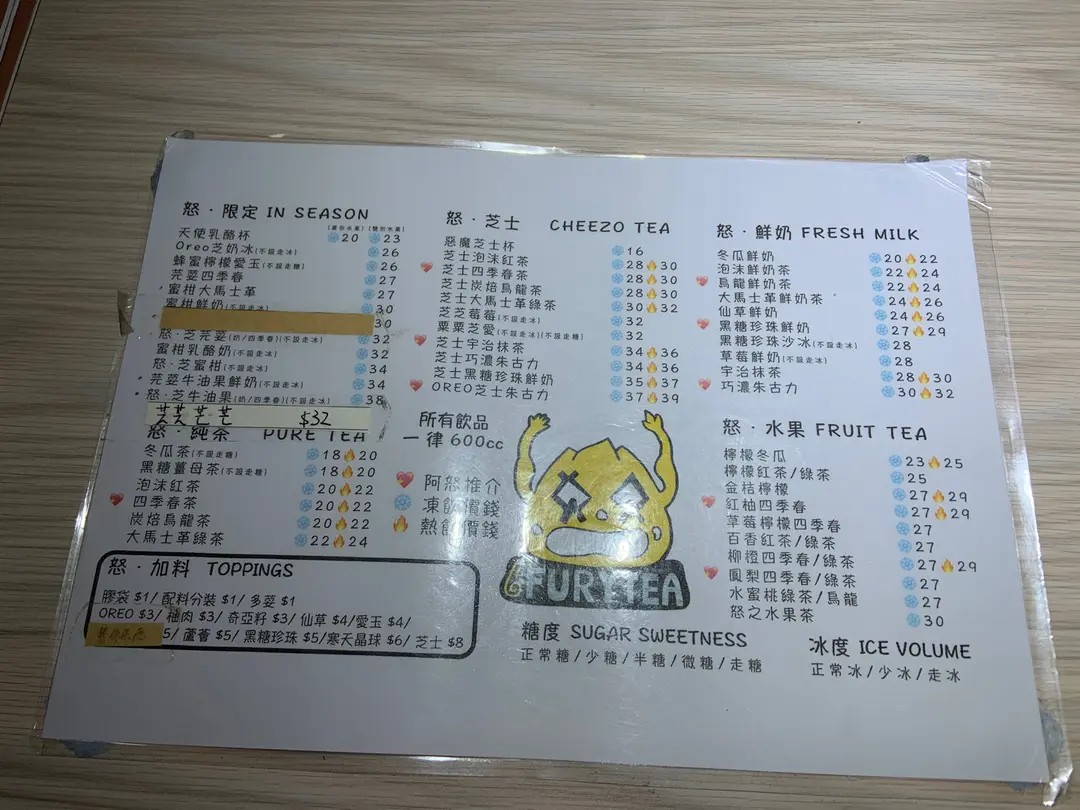 怒·限定 IN SEASON
(單份水果) (雙份水果)
天使乳酪杯 20 23
Oreo芝奶冰(不設走冰) 26
蜂蜜檸檬愛玉(不設走糖) 26
芫荽四季春 27
蜜柑大馬士革 27
蜜柑鮮奶(不設走冰) 30
30
怒·芝芫荽(奶/四季春)(不設走冰) 32
蜜柑乳酪奶(不設走冰) 32
怒·芝蜜柑(不設走冰) 34
芫荽牛油果鮮奶(不設走冰) 34
怒·芝牛油果(奶/四季春)(不設走冰) 38
芝芝芒芒 $32
怒·純茶 PURE TEA
冬瓜茶(不設走糖) 18 20
黑糖薑母茶(不設走糖) 18 20
泡沫紅茶 20 22
四季春茶 20 22
炭焙烏龍茶 20 22
大馬士革綠茶 22 24
怒·加料 TOPPINGS
膠袋 $1/ 配料分裝 $1/ 多荽 $1
OREO $3/ 柚肉 $3/ 奇亞籽 $3/ 仙草 $4/ 愛玉 $4/
5/ 蘆薈 $5/ 黑糖珍珠 $5/ 寒天晶球 $6/ 芝士 $8
怒·芝士 CHEEZO TEA
惡魔芝士杯 16
芝士泡沫紅茶 28 30
芝士四季春茶 28 30
芝士炭焙烏龍茶 28 30
芝士大馬士革綠茶 30 32
芝芝莓莓(不設走冰) 32
粟粟芝愛(不設走冰)(不設走糖) 32
芝士宇治抹茶 34 36
芝士巧濃朱古力 34 36
芝士黑糖珍珠鮮奶 35 37
OREO芝士朱古力 37 39
所有飲品
一律 600cc
阿怒推介
凍飲價錢
熱飲價錢
6FURYTEA
糖度 SUGAR SWEETNESS
正常糖/少糖/半糖/微糖/走糖
怒·鮮奶 FRESH MILK
冬瓜鮮奶 20 22
泡沫鮮奶茶 22 24
烏龍鮮奶茶 22 24
大馬士革鮮奶茶 24 26
仙草鮮奶 24 26
黑糖珍珠鮮奶 27 29
黑糖珍珠沙冰(不設走冰) 28
草莓鮮奶(不設走冰) 28
宇治抹茶 28 30
巧濃朱古力 30 32
怒·水果 FRUIT TEA
檸檬冬瓜 23 25
檸檬紅茶/綠茶 25
金桔檸檬 27 29
紅柚四季春 27 29
草莓檸檬四季春 27
百香紅茶/綠茶 27
柳橙四季春/綠茶 27 29
鳳梨四季春/綠茶 27
水蜜桃綠茶/烏龍 27
怒之水果茶 30
冰度 ICE VOLUME
正常冰/少冰/走冰